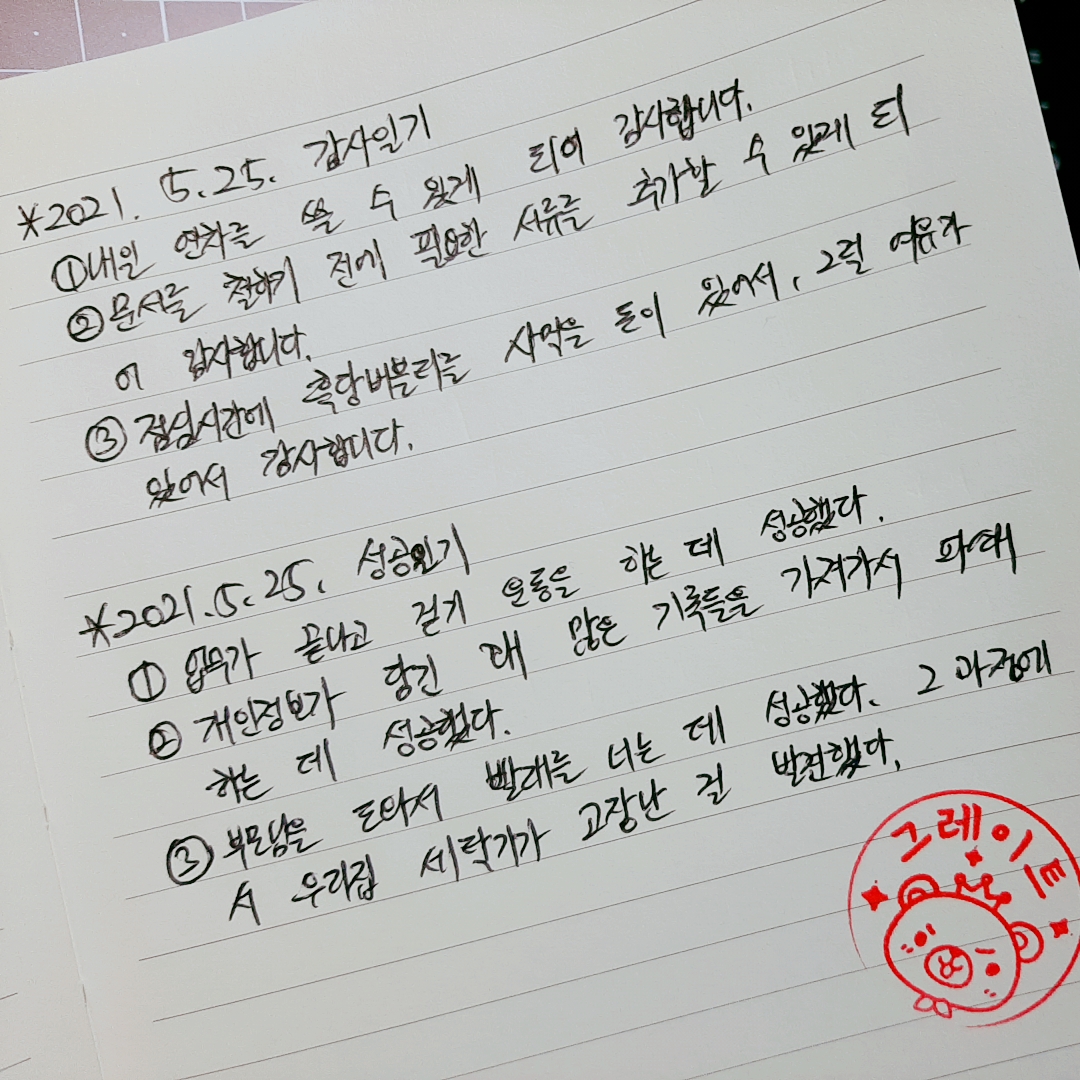 *2021. 5. 25. 감사일기
①내일 연차를 쓸 수 있게 되어 감사합니다.
②문서를 철하기 전에 필요한 서류를 추가할 수 있게 되
어 감사합니다.
③ 점심시간에 흑당버블티를 사먹을 돈이 있어서, 그럴 여유가
있어서 감사합니다.
*2021. 5. 25. 성공일기
① 업무가 끝나고 걷기 운동을 하는 데 성공했다.
② 개인정보가 담긴 꽤 많은 기록들을 가져가서 파쇄
하는 데 성공했다.
③ 부모님을 도와서 빨래를 너는 데 성공했다. 그 과정에
서 우리집 세탁기가 고장난 걸 발견했다.
그레이트